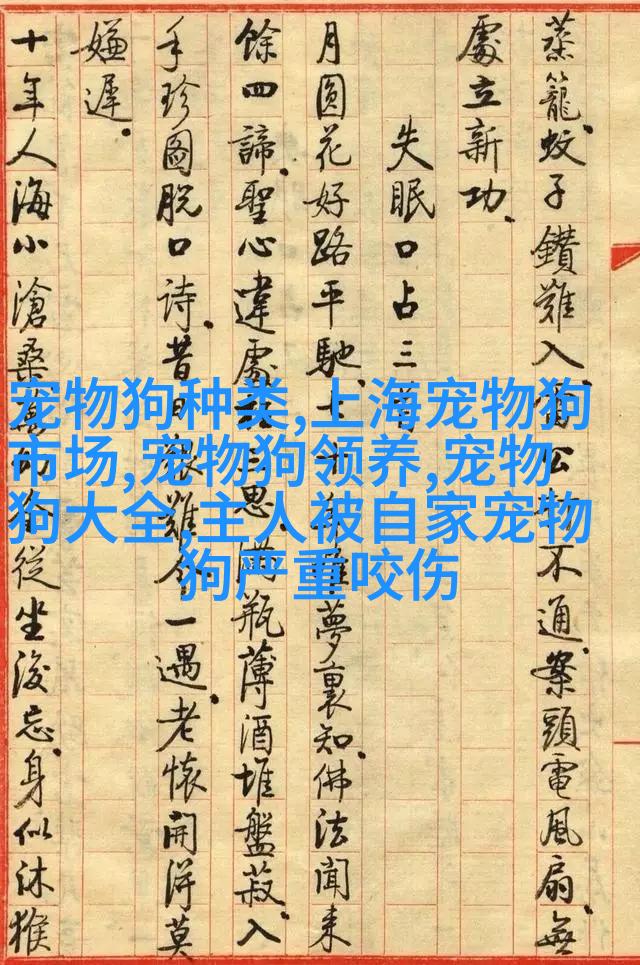 蒸籠。蚊子鑽難入。雷公不通。案頭電風扇。無
處立新功。
失眠口占三
月圓花好路平馳。夢裏知。佛法聞來
餘四諦。聖心違處三思。滿瓶薄酒堆盤菽。入
手珍圖脫口詩。昔日艱難今一遇。老懷開得莫
嫌遲。
十年人海小滄桑。從坐後忘。身似沐猴
宠物狗种类,上海宠物狗
市场,宠物狗领养,宠物
狗大全,主人被自家宠物
狗严重咬伤